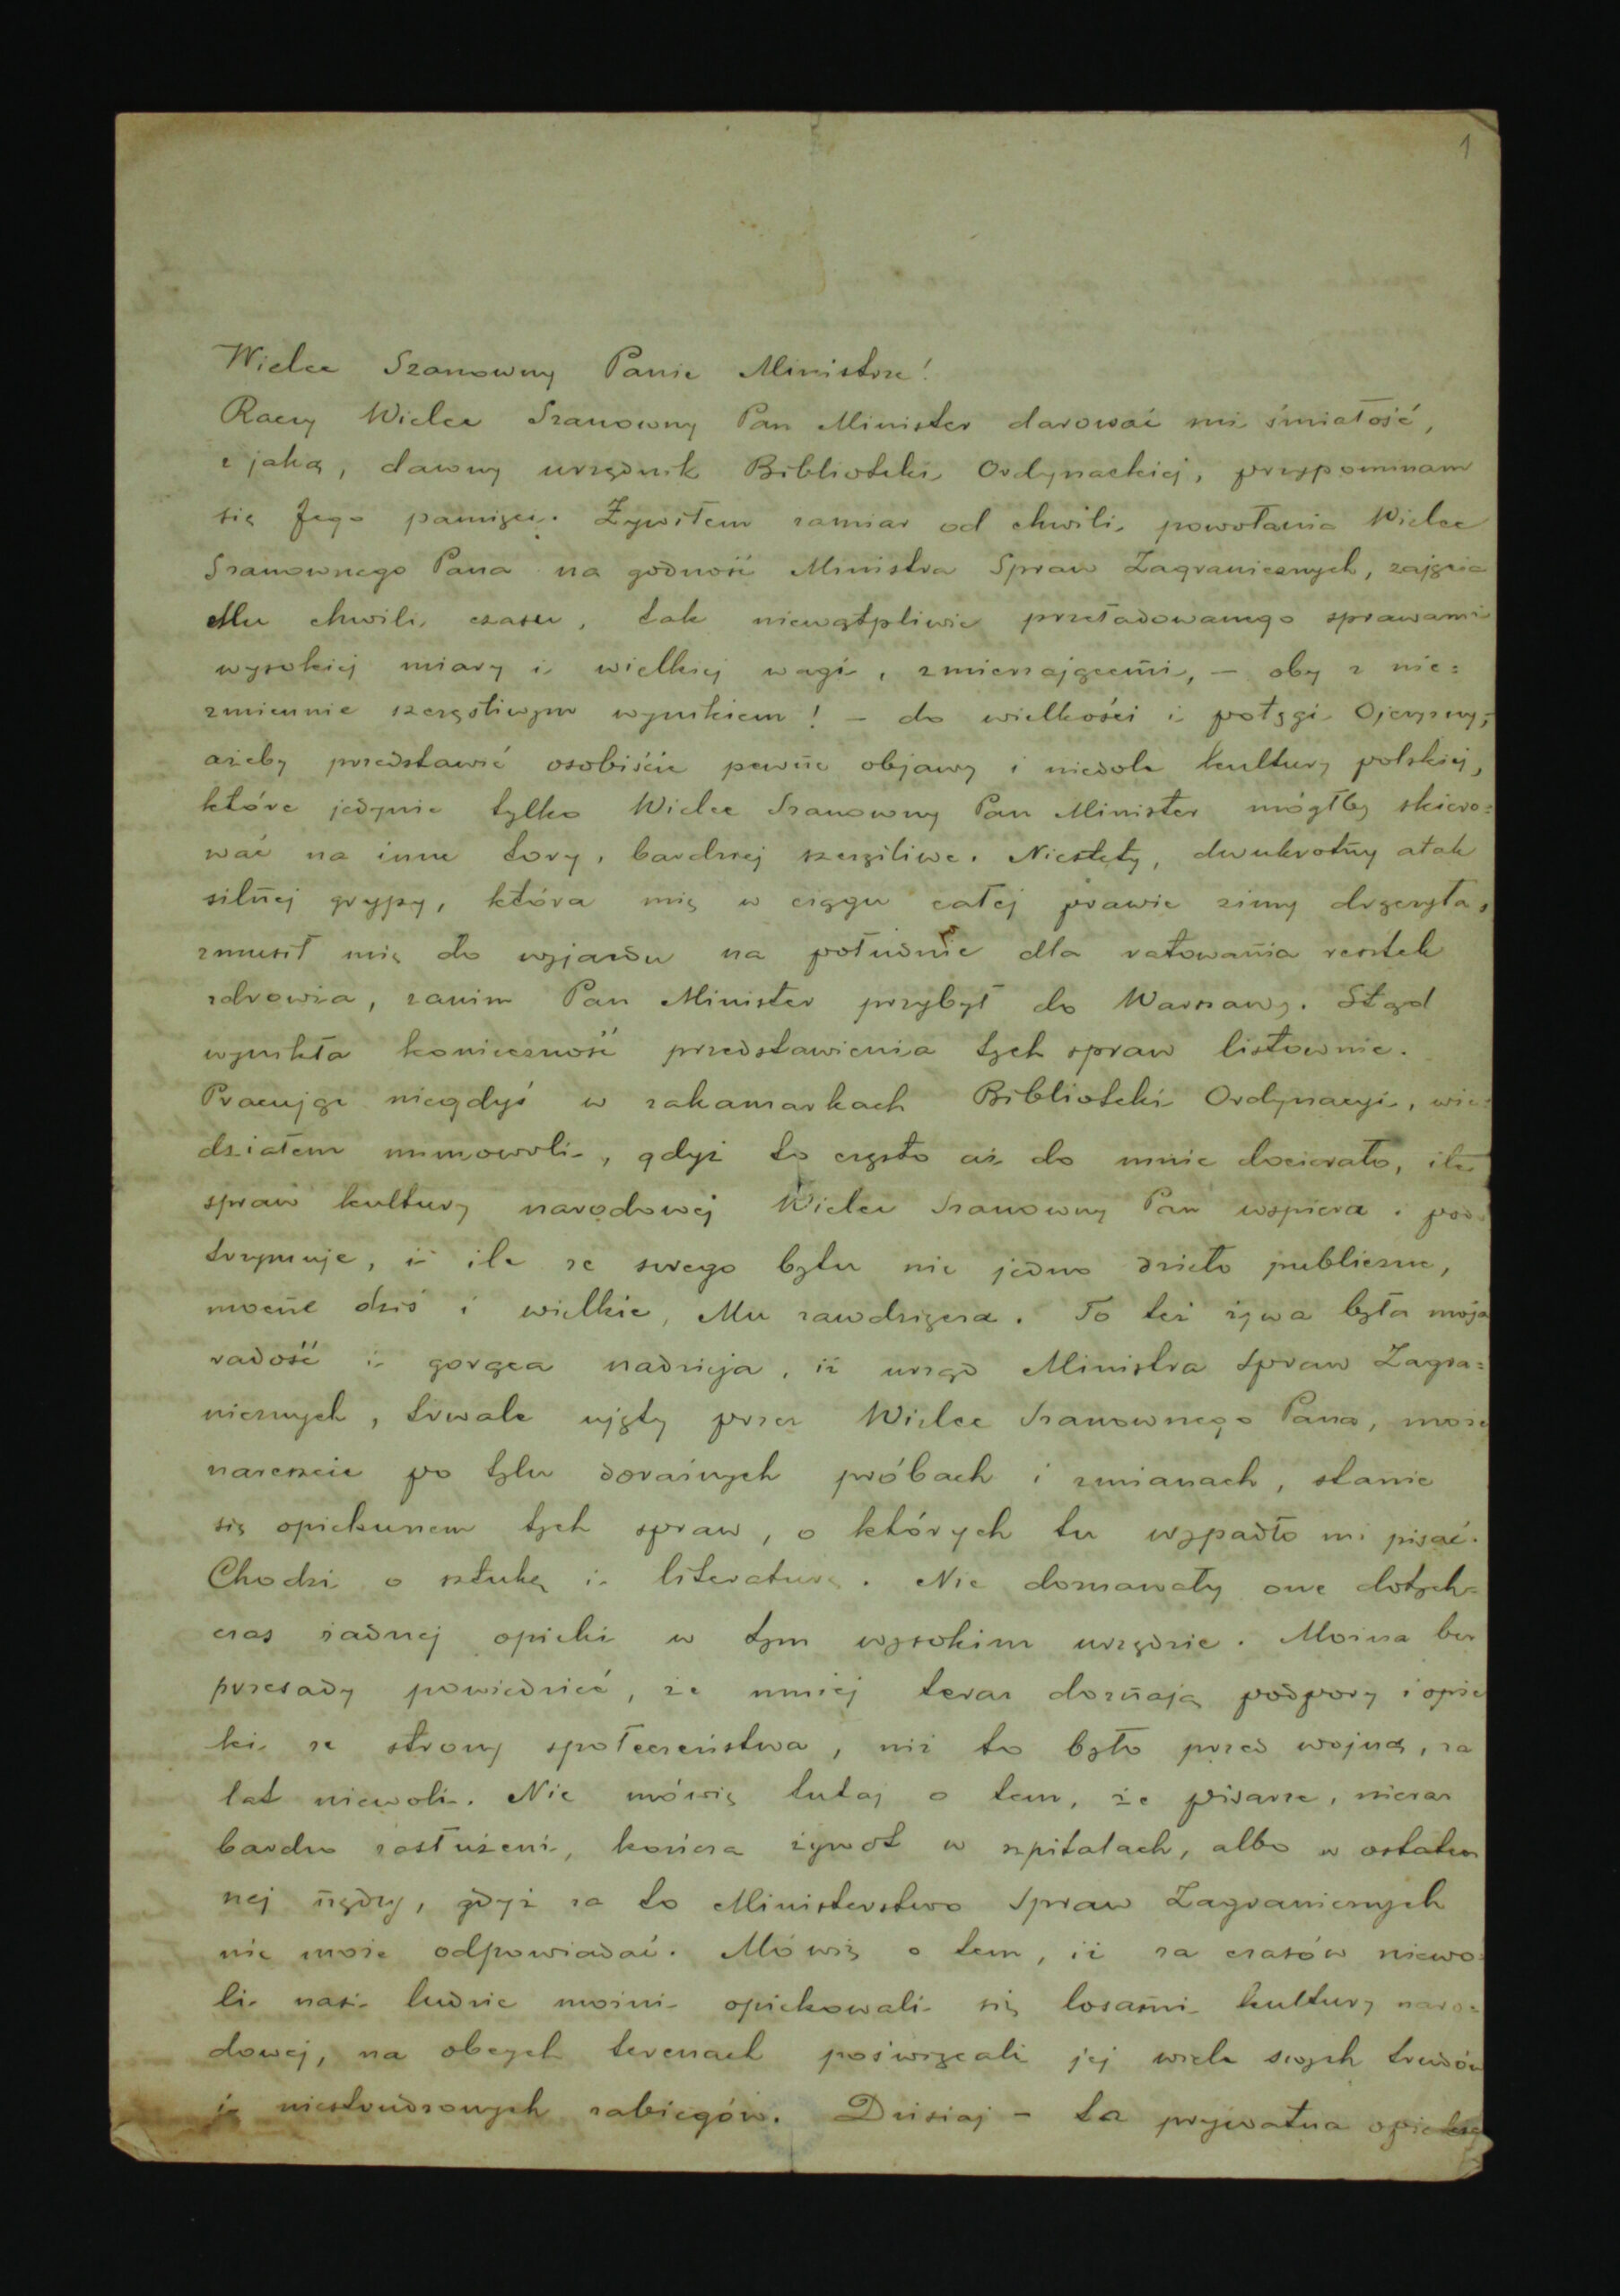 1
Wielce Szanowny Panie Ministrze!
Raczy Wielce Szanowny Pan Minister darować mi śmiałość,
z jaką, dawny urzędnik Biblioteki Ordynackiej, przypominam
się Jego pamięci. Żywiłem zamiar od chwili powołania Wielce
Szanownego Pana na godność Ministra Spraw Zagranicznych, zajęcia
Mu chwili czasu, tak niewątpliwie przeładowanego sprawami
wysokiej miary i wielkiej wagi, zmierzającemi, – oby z nie=
zmiennie szczęśliwym wynikiem! – do wielkości i potęgi Ojczyzny,
ażeby przedstawić osobiście pewne objawy i niedole kultury polskiej,
które jedynie tylko Wielce Szanowny Pan Minister mógłby skiero=
wać na inne tory, bardziej szczęśliwe. Niestety, dwukrotny atak
silnej grypy, która mię w ciągu całej prawie zimy dręczyła,
zmusił mię do wyjazdu na południe dla ratowania resztek
zdrowia, zanim Pan Minister przybył do Warszawy. Stąd
wynikła konieczność przedstawienia tych spraw listownie.
Pracując niegdyś w zakamarkach Biblioteki Ordynacyi, wie=
działem mimowoli, gdyż to często aż do mnie docierało, ile
spraw kultury narodowej Wielce Szanowny Pan wspiera i pod=
trzymuje, i ile ze swego bytu nie jedno dzieło publiczne,
mocne dziś i wielkie, Mu zawdzięcza. To też żywa była moja
radość i gorąca nadzieja, iż urząd Ministra Spraw Zagra=
nicznych, trwale ujęty przez Wielce Szanownego Pana, może
nareszcie po tylu doraźnych próbach i zmianach, stanie
się opiekunem tych spraw, o których tu wypadło mi pisać.
Chodzi o sztukę i literaturę. Nie doznawały one dotych=
czas żadnej opieki w tym wysokim urzędzie. Można bez
przesady powiedzieć, że mniej teraz doznają podpory i opie
ki ze strony społeczeństwa, niż to było przed wojną, za
lat niewoli. Nie mówię tutaj o tem, że pisarze, nieraz
bardzo zasłużeni, kończą żywot w szpitalach, albo w ostatecz
nej nędzy, gdyż za to Ministerstwo Spraw Zagranicznych
nie może odpowiadać. Mówię o tem, iż za czasów niewo=
li nasi ludzie możni opiekowali się losami kultury naro=
dowej, na obcych terenach poświęcali jej wiele swych trudów
i niestrudzonych zabiegów. Dzisiaj – ta prywatna opieka